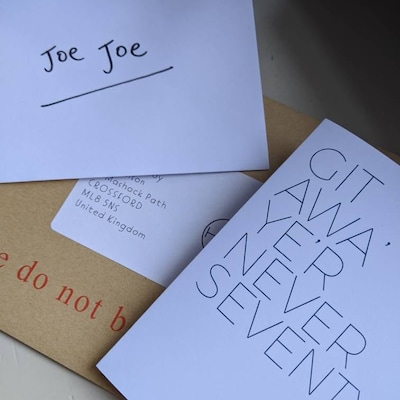 Joe Joe
Mashock Path
CROSSFORD
ML8 5NS
United Kingdom
do not b
GIT
AWA',
YE'R
NEVER
SEVENT